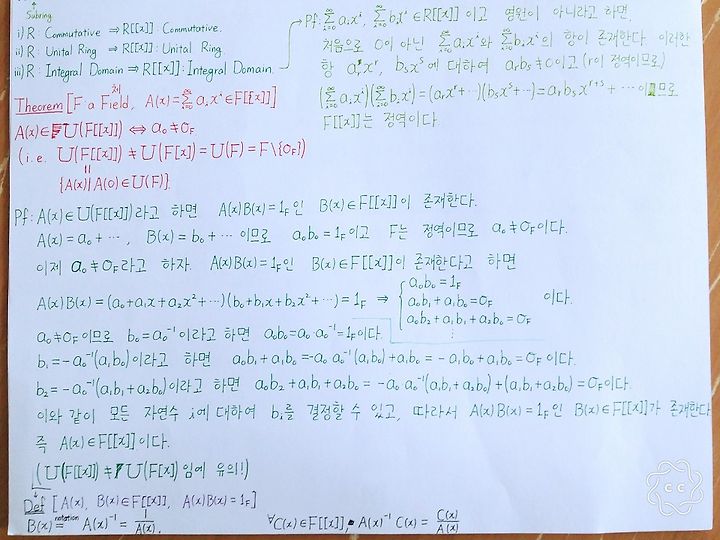 Subring.
i) R : Commutative ⇒ R[[x]] : Commutative.
ii) R : Unital Ring ⇒ R[[x]] : Unital Ring.
iii) R : Integral Domain ⇒ R[[x]] : Integral Domain.
Pf: ∑_{i=0}^∞ a_i x^i, ∑_{i=0}^∞ b_i x^i ∈ R[[x]] 이고 영원이 아니라고 하면,
처음으로 0이 아닌 ∑_{i=0}^∞ a_i x^i와 ∑_{i=0}^∞ b_i x^i의 항이 존재한다. 이러한
항 a_r x^r, b_s x^s에 대하여 a_r b_s ≠ 0이고 (r이 정역이므로)
(∑_{i=0}^∞ a_i x^i)(∑_{i=0}^∞ b_i x^i) = (a_r x^r+⋯)(b_s x^s+⋯) = a_r b_s x^{r+s} + ⋯ 이므로
F[[x]]는 정역이다.
체
Theorem [F : a Field, A(x)=∑_{i=0}^∞ a_i x^i ∈ F[[x]]]
A(x) ∈ U(F[[x]]) ⇔ a_0 ≠ 0_F.
(i.e. U(F[[x]]) ≠ U(F[x]) = U(F) = F\{0_F})
॥
{A(x) | A(0) ∈ U(F)}.
Pf : A(x) ∈ U(F[[x]])라고 하면 A(x)B(x) = 1_F인 B(x) ∈ F[[x]]이 존재한다.
A(x) = a_0 + ⋯, B(x) = b_0 + ⋯ 이므로 a_0b_0 = 1_F이고 F는 정역이므로 a_0 ≠ 0_F이다.
이제 a_0 ≠ 0_F라고 하자. A(x)B(x) = 1_F인 B(x) ∈ F[[x]]이 존재한다고 하면
A(x)B(x) = (a_0 + a_1x + a_2x^2 + ⋯)(b_0 + b_1x + b_2x^2 + ⋯) = 1_F ⇒ { a_0b_0 = 1_F
a_0b_1 + a_1b_0 = 0_F 이다.
a_0b_2 + a_1b_1 + a_2b_0 = 0_F
⋮
a_0 ≠ 0_F이므로 b_0 = a_0^{-1}이라고 하면 a_0b_0 = a_0 a_0^{-1} = 1_F이다.
b_1 = -a_0^{-1}(a_1b_0)이라고 하면 a_0b_1 + a_1b_0 = -a_0 a_0^{-1}(a_1b_0) + a_1b_0 = -a_1b_0 + a_1b_0 = 0_F이다.
b_2 = -a_0^{-1}(a_1b_1 + a_2b_0)이라고 하면 a_0b_2 + a_1b_1 + a_2b_0 = -a_0 a_0^{-1}(a_1b_1 + a_2b_0) + (a_1b_1 + a_2b_0) = 0_F이다.
이와 같이 모든 자연수 i에 대하여 b_i를 결정할 수 있고, 따라서 A(x)B(x) = 1_F인 B(x) ∈ F[[x]]가 존재한다
즉 A(x) ∈ F[[x]]이다.
(U(F[[x]]) ≠ U(F[x])임에 유의!)
Def [A(x), B(x) ∈ F[[x]], A(x)B(x) = 1_F]
B(x) =^{notation} A(x)^{-1} = 1/A(x). ∀C(x) ∈ F[[x]], A(x)^{-1} C(x) = C(x)/A(x)
CC